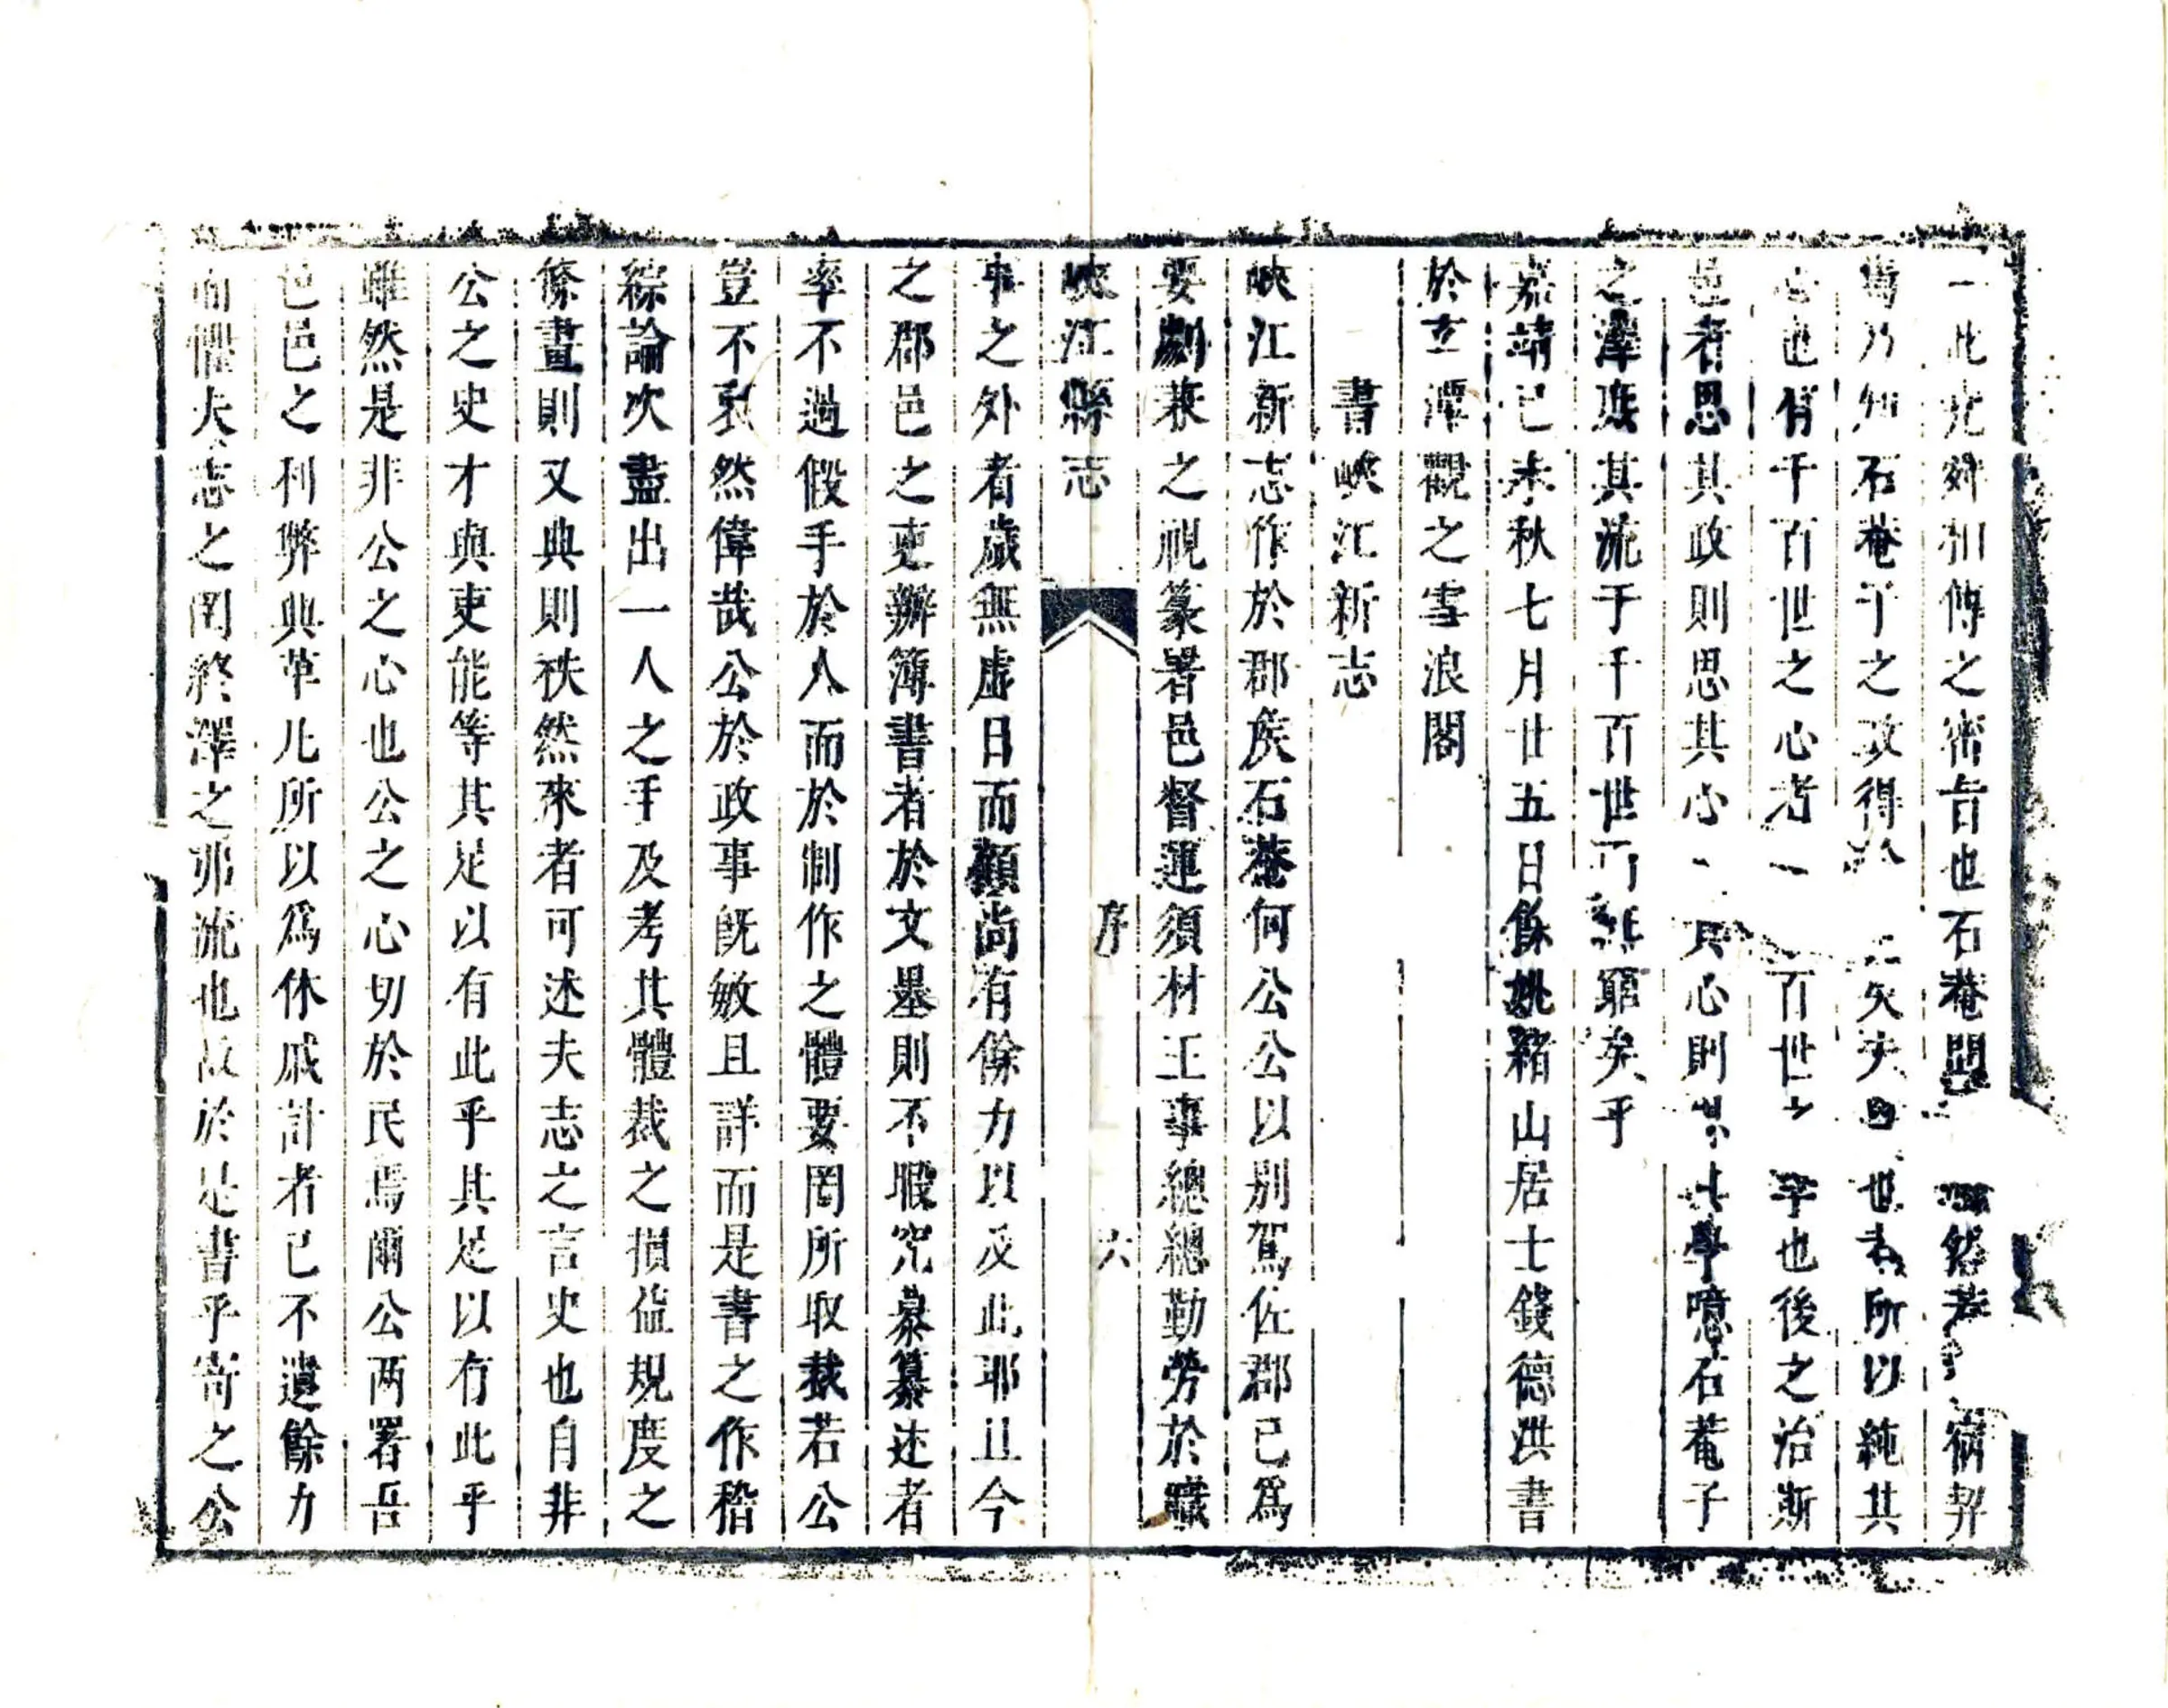 一此尤
傳之宻旨也石菴
然若
宿契
焉乃知石菴
之政得人
矣夫
也者所以純其
心迪
千百世之心者一
百世之
學也後之治斯
邑者思其政則思其心
其心則
其學噫石菴子
之澤
其流于千百世而無窮矣乎
嘉靖已未秋七月廿五日餘姚緒山居士錢德洪書
於玄潭觀之雪浪閣
書峽江新志
峽江新志作於郡矦石菴何公公以别駕佐郡已爲
要劇兼之視篆署邑督運須材王事總總勤勞於職
峽江縣志
序
六
事之外者歲無虛日而顧尚有餘力以及此耶且今
之郡邑之吏辦簿書者於文墨則不暇究慕纂述者
率不過假手於人而於制作之體要罔所取裁若公
豈不
然偉哉公於政事既敏且詳而是書之作稽
綜論次盡出一人之手及考其體裁之損益規度之
條畫則又典則秩然來者可述夫志之言史也自非
公之史才與吏能等其足以有此乎其足以有此乎
雖然是非公之心也公之心切於民焉爾公两署吾
邑邑之利弊興革凡所以爲休戚計者已不遺餘力
而懼夫志之罔終澤之弗流也故於是書乎寄之公